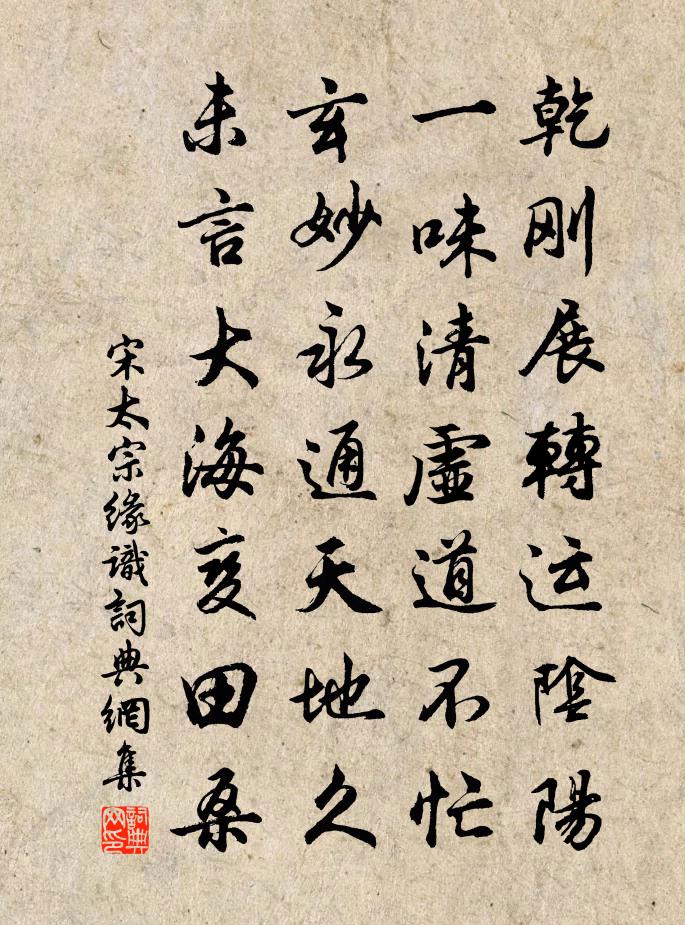 乾刚展轉运陰陽
一味清虛道不忙
玄妙永通天地久
未言大海变田桑
宋太宗缘識詞典網集
詞典网印